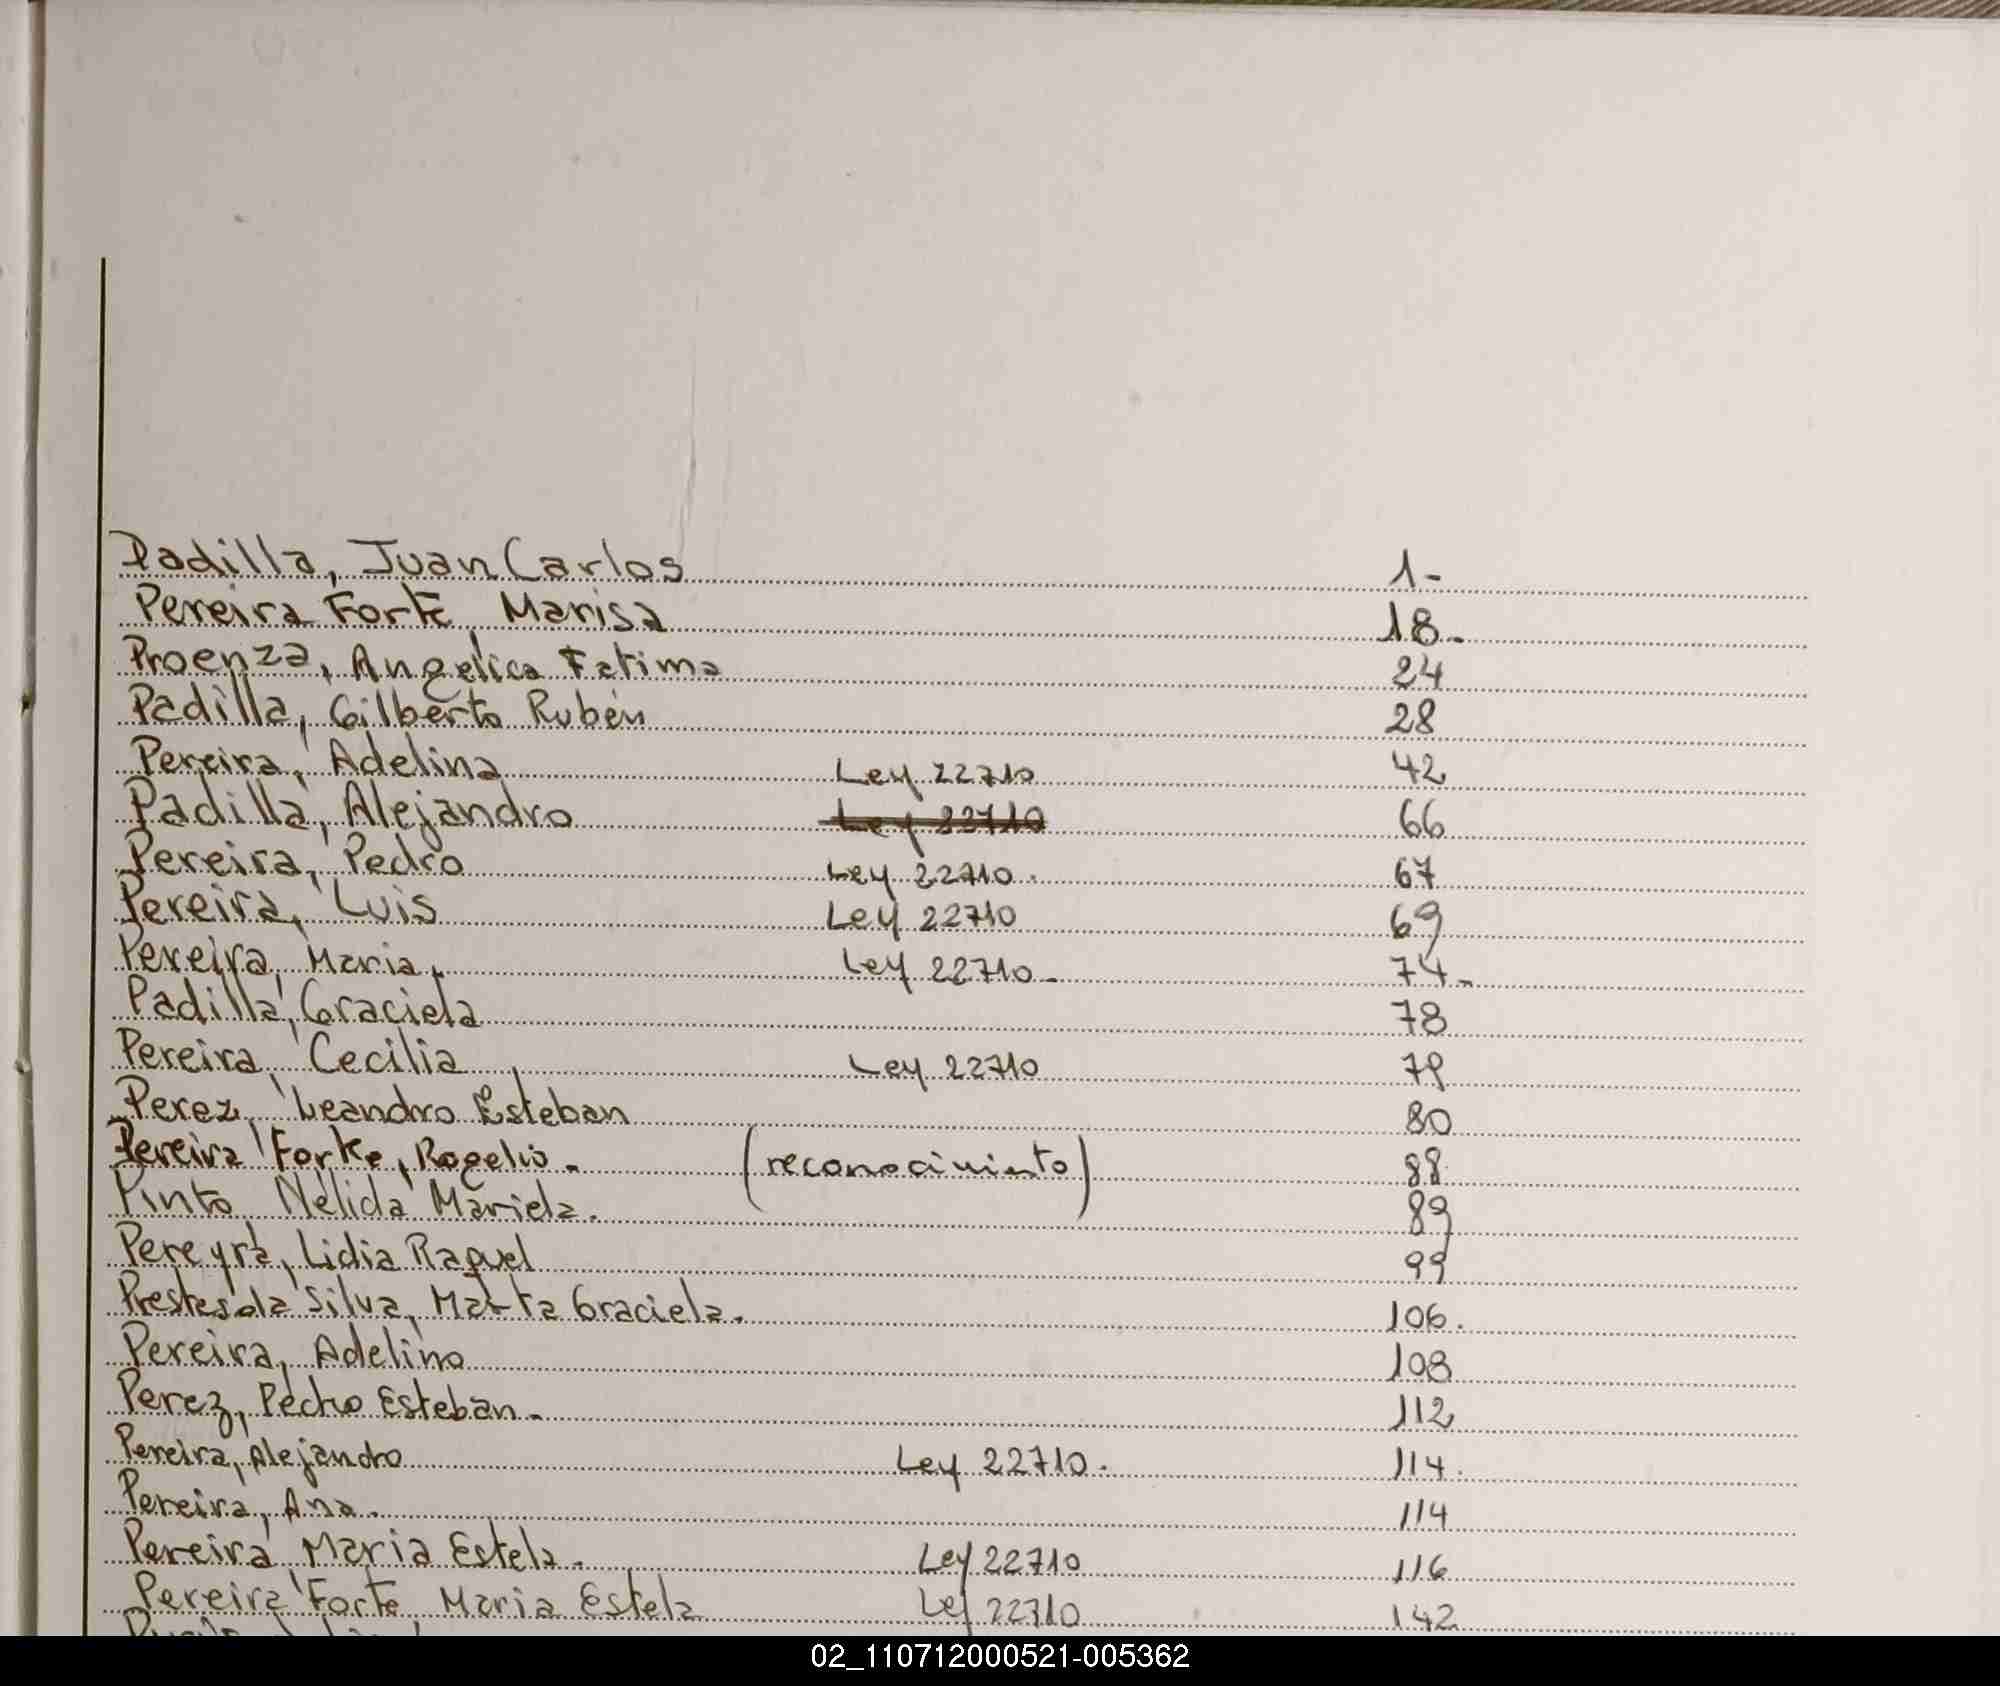 Padilla, Juan Carlos 1-
Pereira Forte, Marisa 18-
Proenza, Angelica Fatima 24
Padilla, Gilberto Rubén 28
Pereira, Adelina Ley 22710 42
Padilla, Alejandro Ley 22710 66
Pereira, Pedro Ley 22710. 67
Pereira, Luis Ley 22710 69
Pereira, Maria. Ley 22710- 74-
Padilla, Graciela 78
Pereira, Cecilia Ley 22710 79
Perez, Leandro Esteban 80
Pereira Forte, Rogelio. (reconocimiento) 88
Pinto Nélida Mariela. 89
Pereyra, Lidia Raquel 99
Prestes da Silva, Marta Graciela. 106.
Pereira, Adelino 108
Perez, Pedro Esteban. 112
Pereira, Alejandro Ley 22710. 114.
Pereira, Ana. 114
Pereira, Maria Estela. Ley 22710 116
Pereira Forte, Maria Estela Ley 22710 142
02_110712000521-005362